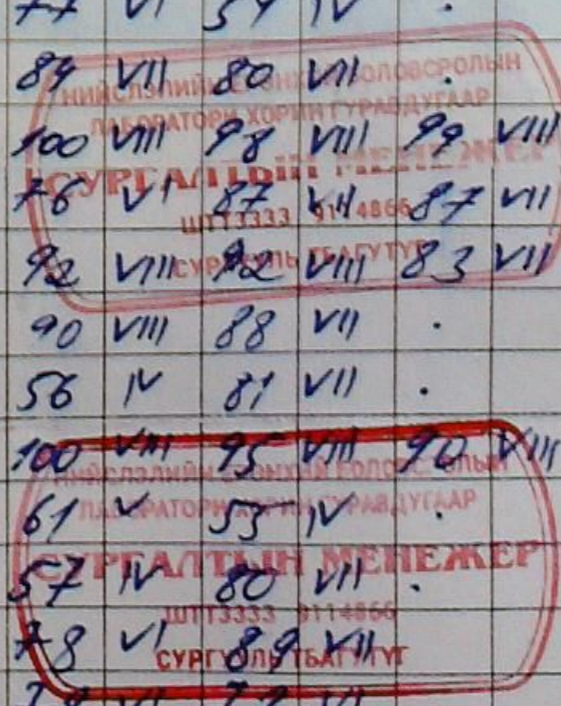 77 VI 54 IV .
84 VII 80 VII .
100 VIII 98 VIII 99 VIII
76 VI 87 VII 87 VII
92 VIII 92 VIII 83 VII
90 VIII 88 VII .
56 IV 81 VII .
100 VIII 95 VIII 90 VIII
61 V 53 IV .
57 IV 80 VII .
78 VI 89 VII
НИЙСЛЭЛИЙН ЕРӨНХИЙ БОЛОВСРОЛЫН
ЛАБОРАТОРИ ХОРИН ГУРАВДУГААР
СУРГАЛТЫН МЕНЕЖЕР
ШТТ3333 9114866
СУРГУУЛЬ ТБАГУТҮГ
НИЙСЛЭЛИЙН ЕРӨНХИЙ БОЛОВСРОЛЫН
ЛАБОРАТОРИ ХОРИН ГУРАВДУГААР
СУРГАЛТЫН МЕНЕЖЕР
ШТТ3333 9114866
СУРГУУЛЬ ТБАГУТҮГ